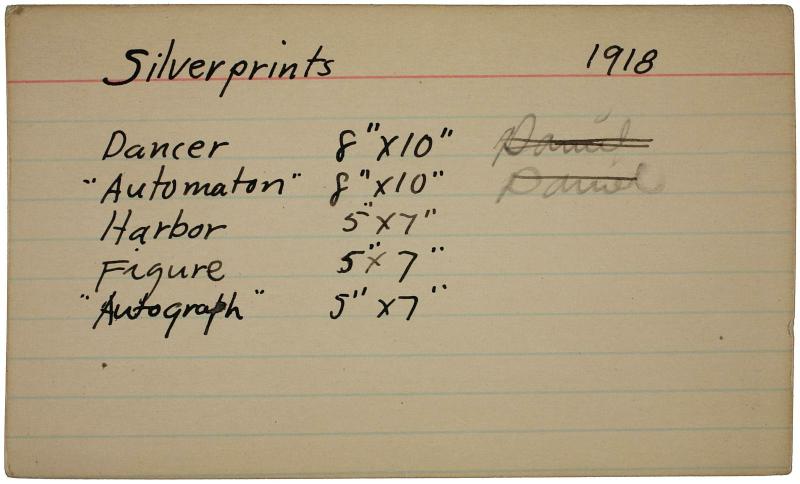 Silverprints 1918
Dancer 8"x10" Daniel
"Automaton" 8"x10" Daniel
Harbor 5"x7"
Figure 5"x7"
"Autograph" 5"x7"